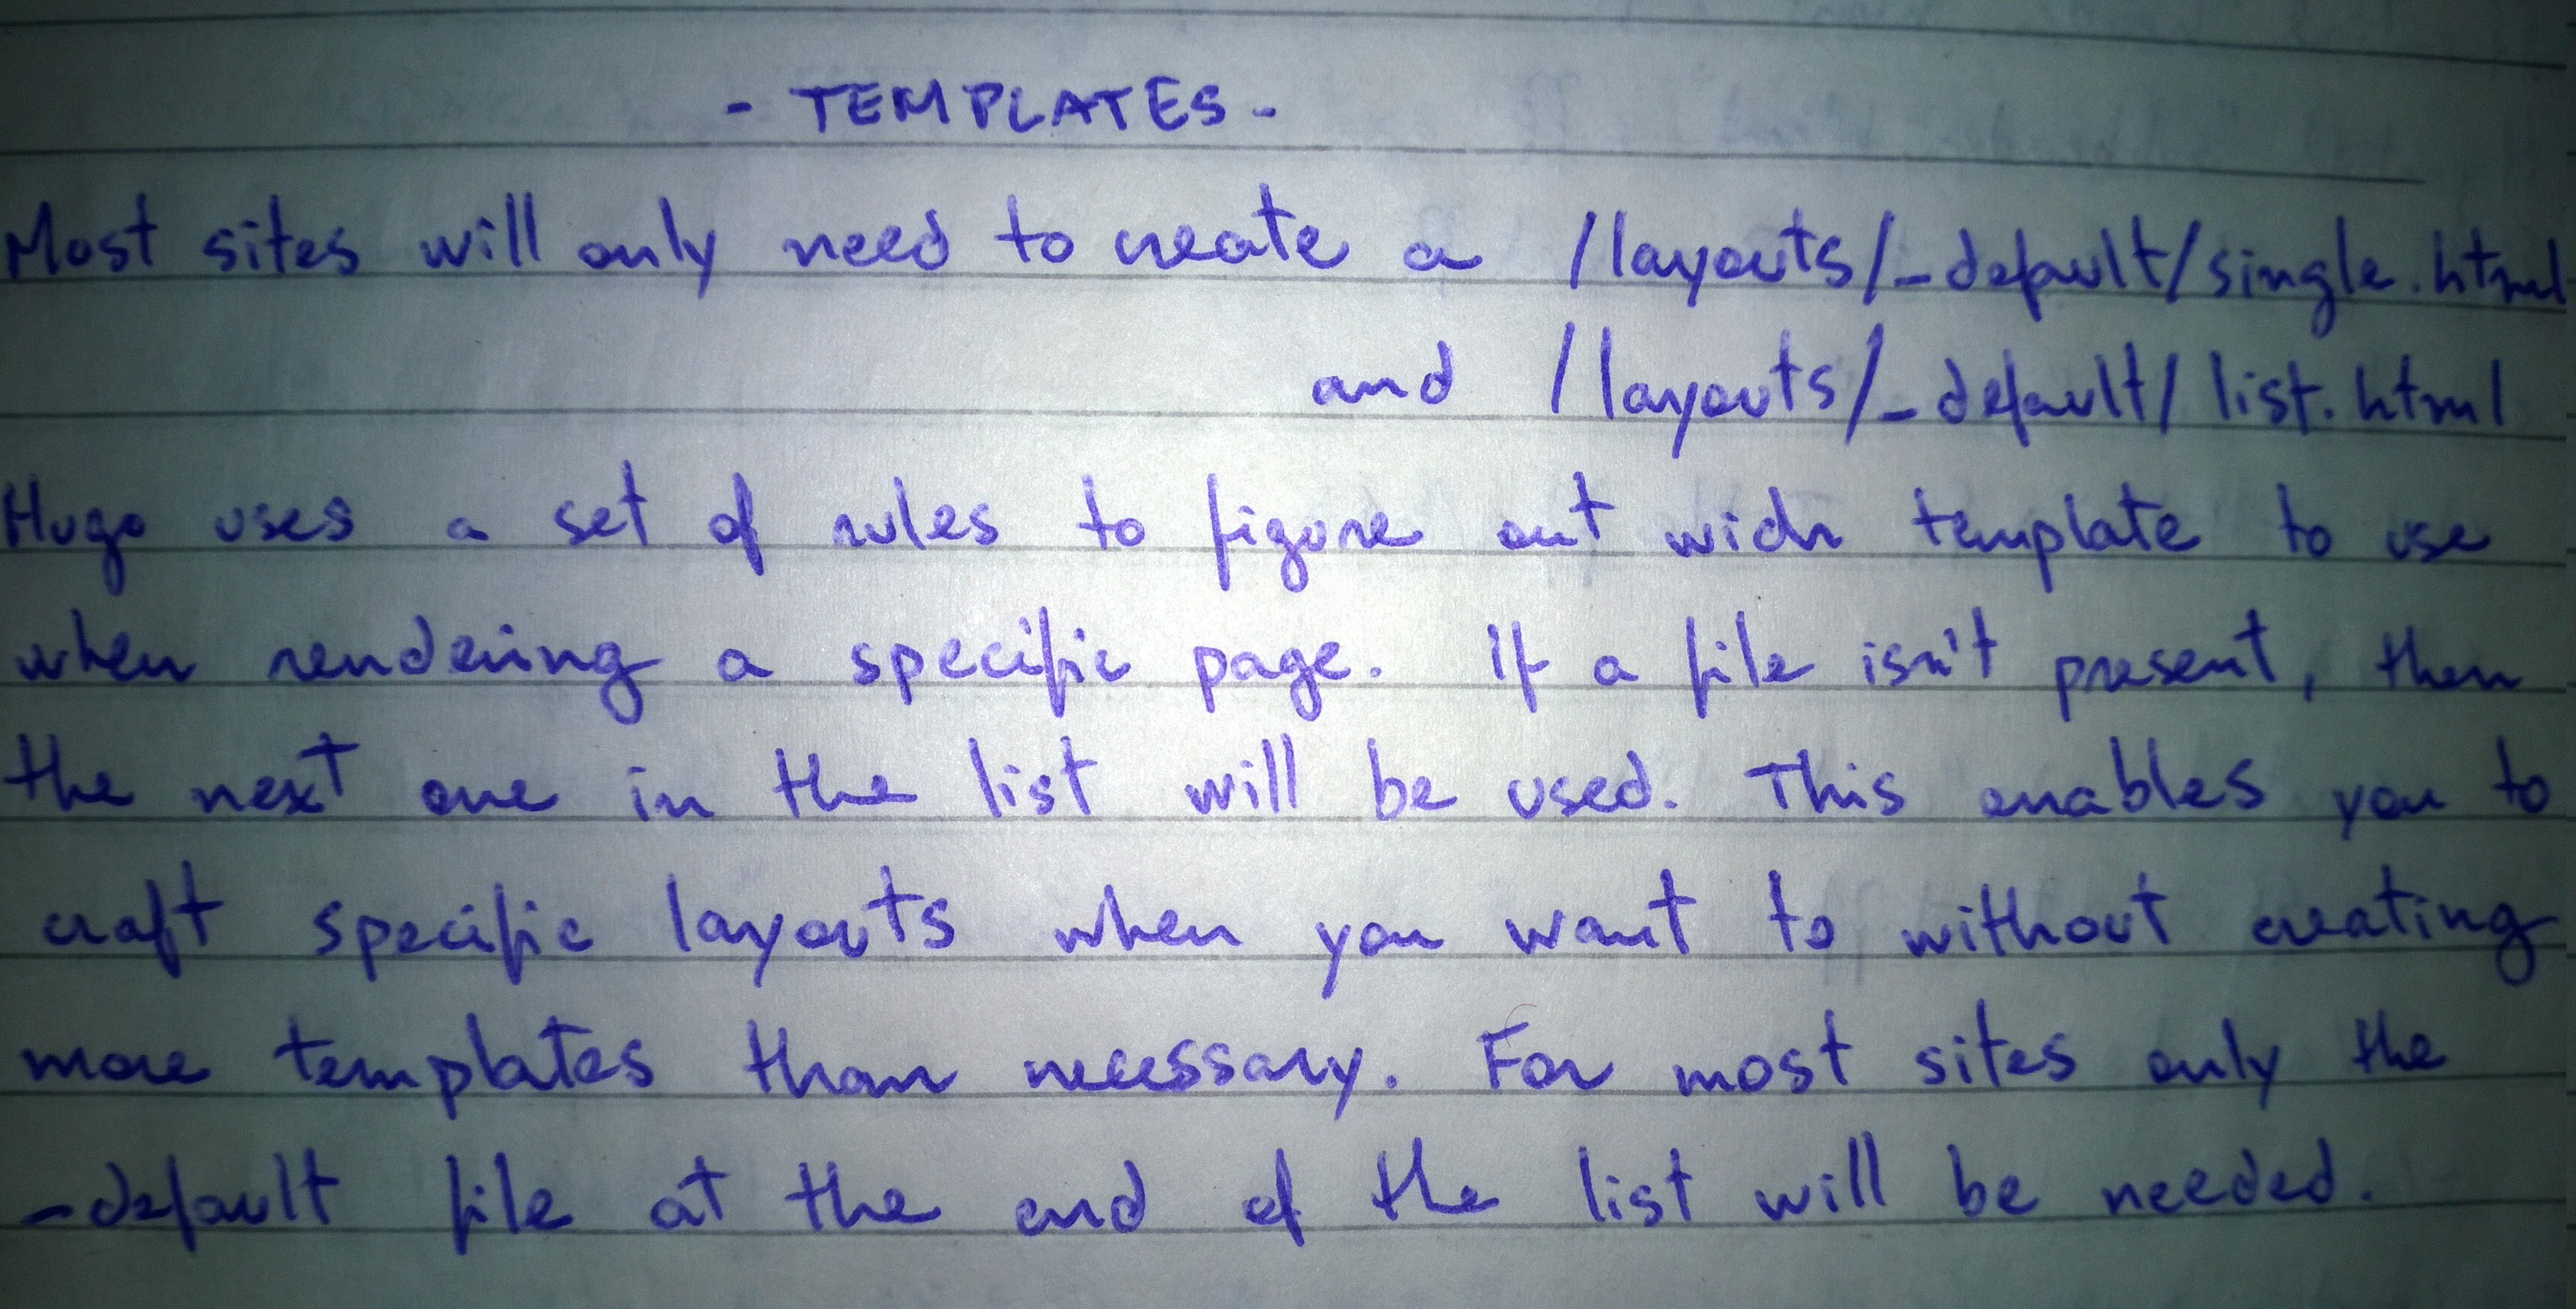 - TEMPLATES -
Most sites will only need to create a /layouts/_default/single.html
and /layouts/_default/list.html
Hugo uses a set of rules to figure out wich template to use
when rendering a specific page. If a file isn't present, then
the next one in the list will be used. This enables you to
craft specific layouts when you want to without creating
more templates than necessary. For most sites only the
_default file at the end of the list will be needed.